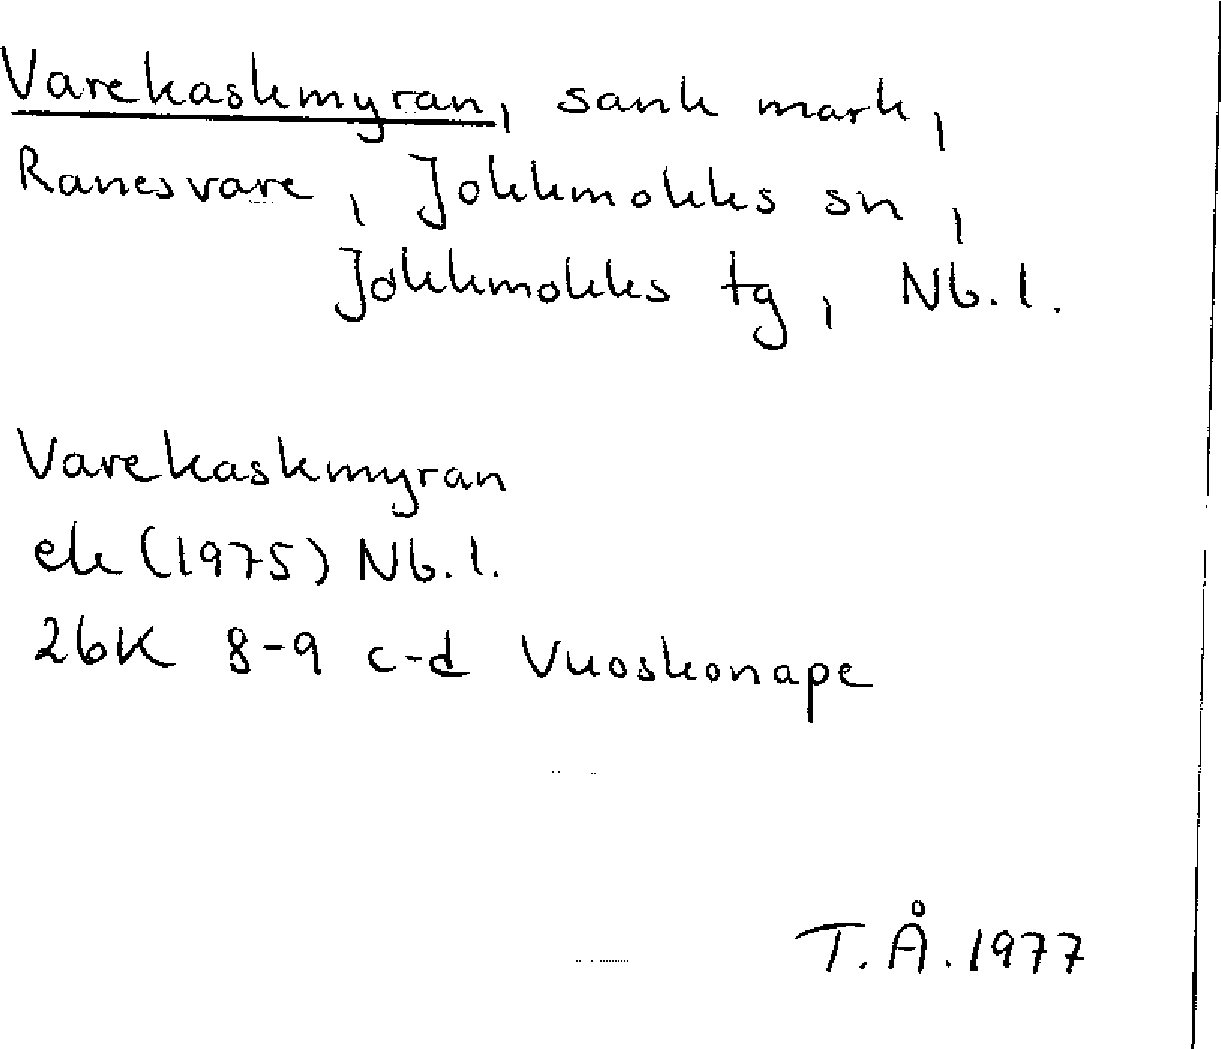 Varekaskmyran, sank mark,
Ranesvare, Jokkmokks sn,
Jokkmokks tg, Nb.l.
Varekaskmyran
ek (1975) Nb.l.
26K 8-9 c-d Vuoskonape
T.Å. 1977